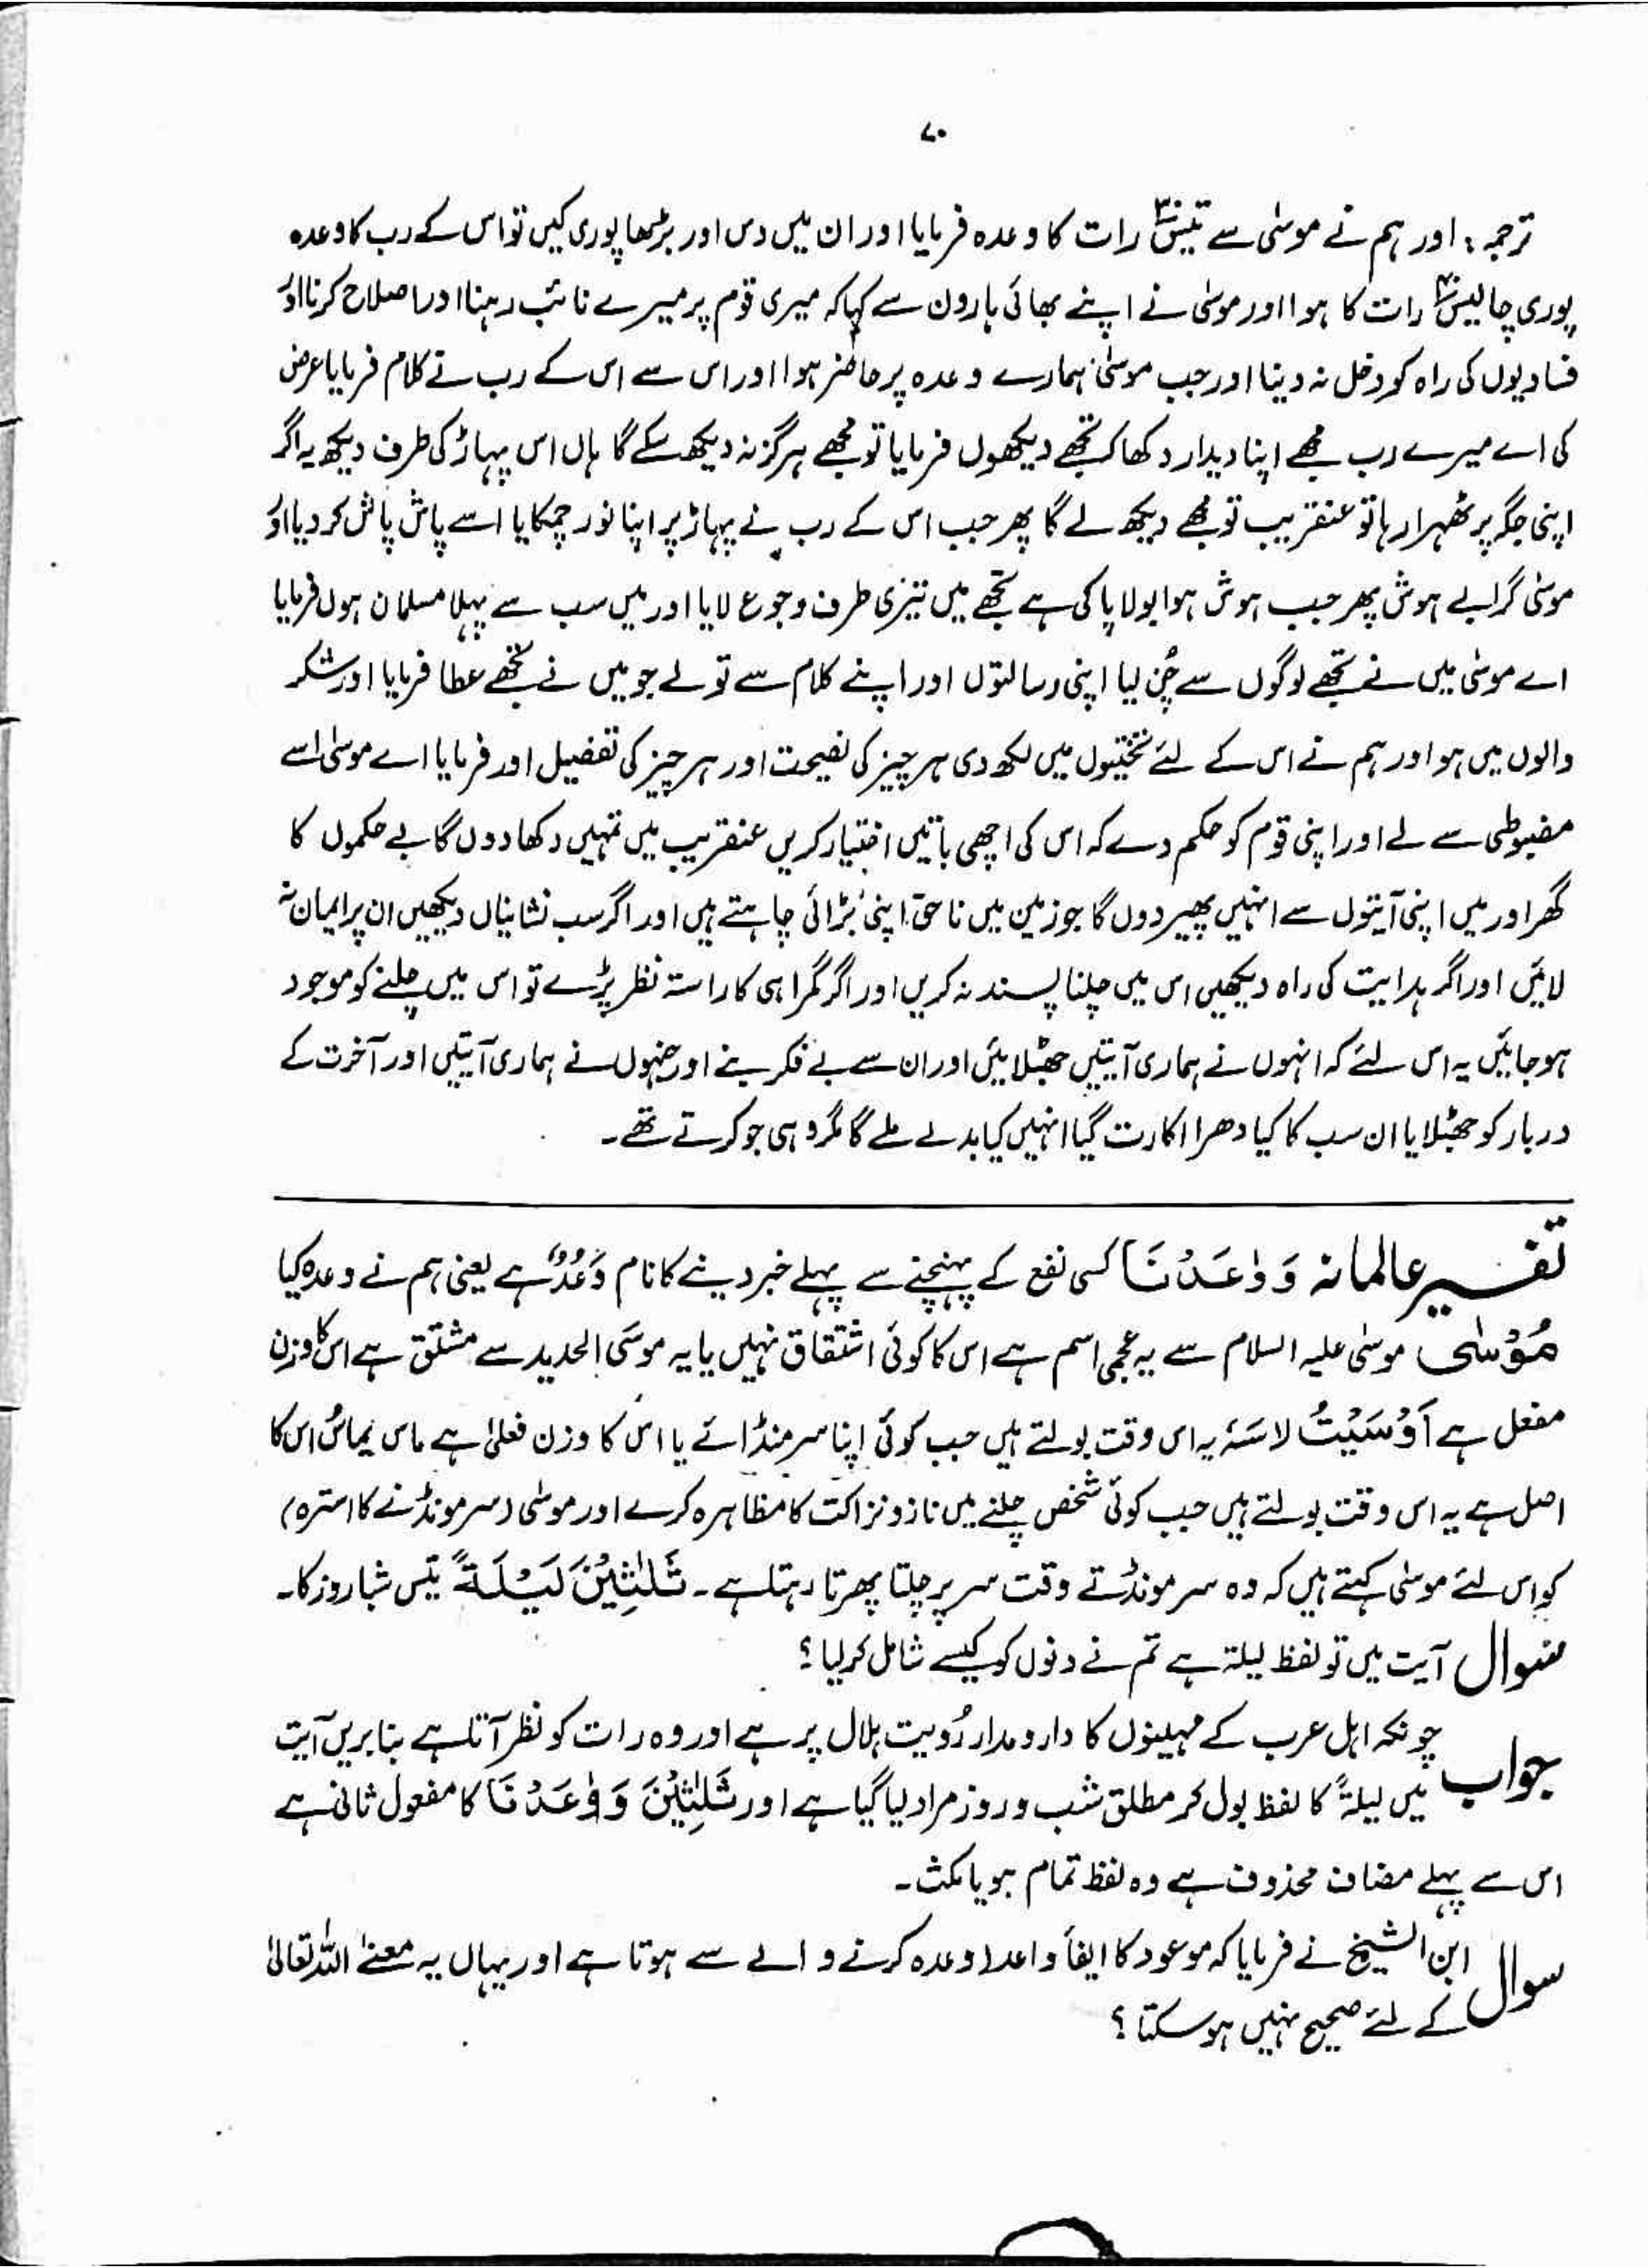 ۷۰
ترجمہ: اور ہم نے موسٰی سے تیس۳۰ رات کا وعدہ فرمایا اور ان میں دس اور بڑھا پوری کیں تو اس کے رب کا وعدہ
پوری چالیس۴۰ رات کا ہوا اور موسٰی نے اپنے بھائی ہارون سے کہا کہ میری قوم پر میرے نائب رہنا اور اصلاح کرنا اور
فسادیوں کی راہ کو دخل نہ دینا اور جب موسٰی ہمارے وعدہ پر حاضر ہوا اور اس سے اس کے رب نے کلام فرمایا عرض
کی اے میرے رب مجھے اپنا دیدار دکھا کہ تجھے دیکھوں فرمایا تو مجھے ہرگز نہ دیکھ سکے گا ہاں اس پہاڑ کی طرف دیکھ یہ اگر
اپنی جگہ پر ٹھہرا رہا تو عنقریب تو مجھے دیکھ لے گا پھر جب اس کے رب نے پہاڑ پر اپنا نور چمکایا اسے پاش پاش کر دیا اور
موسٰی گرا بے ہوش پھر جب ہوش ہوا بولا پاکی ہے تجھے میں تیری طرف رجوع لایا اور میں سب سے پہلا مسلمان ہوں فرمایا
اے موسٰی میں نے تجھے لوگوں سے چُن لیا اپنی رسالتوں اور اپنے کلام سے تو لے جو میں نے تجھے عطا فرمایا اور شکر
والوں میں ہو اور ہم نے اس کے لئے تختیوں میں لکھ دی ہر چیز کی نصیحت اور ہر چیز کی تفصیل اور فرمایا اے موسٰی اسے
مضبوطی سے لے اور اپنی قوم کو حکم دے کہ اس کی اچھی باتیں اختیار کریں عنقریب میں تمہیں دکھا دوں گا بے حکموں کا
گھر اور میں اپنی آیتوں سے انہیں پھیر دوں گا جو زمین میں ناحق اپنی بڑائی چاہتے ہیں اور اگر سب نشانیاں دیکھیں ان پر ایمان نہ
لائیں اور اگر ہدایت کی راہ دیکھیں اس میں چلنا پسند نہ کریں اور اگر گمراہی کا راستہ نظر پڑے تو اس میں چلنے کو موجود
ہو جائیں یہ اس لئے کہ انہوں نے ہماری آیتیں جھٹلائیں اور ان سے بے فکر بنے اور جنہوں نے ہماری آیتیں اور آخرت کے
دربار کو جھٹلایا ان سب کا کیا دھرا اکارت گیا انہیں کیا بدلے ملے گا مگر وہی جو کرتے تھے۔
تفسیر عالمانہ وَ وٰعَدْنَا کسی نفع کے پہنچنے سے پہلے خبر دینے کا نام وَعْدٌ ہے یعنی ہم نے وعدہ کیا
مُوْسٰی موسٰی علیہ السلام سے یہ عجمی اسم ہے اس کا کوئی اشتقاق نہیں یا یہ موسَی الحدید سے مشتق ہے اس کا وزن
مفعل ہے اَوْسَیْتُ لاسَہٗ یہ اس وقت بولتے ہیں جب کوئی اپنا سر منڈائے یا اس کا وزن فعلیٰ ہے ماس یماسُ اس کا
اصل ہے یہ اس وقت بولتے ہیں جب کوئی شخص چلنے میں ناز و نزاکت کا مظاہرہ کرے اور موسٰی (سر مونڈنے کا استرہ)
کو اس لئے موسٰی کہتے ہیں کہ وہ سر مونڈتے وقت سر پر چلتا پھرتا رہتا ہے۔ ثَلٰثِیْنَ لَیْلَةً تیس شبا روز کا۔
سوال آیت میں تو لفظ لیلة ہے تم نے دنوں کو کیسے شامل کر لیا؟
جواب چونکہ اہل عرب کے مہینوں کا دارومدار رُویت ہلال پر ہے اور وہ رات کو نظر آتا ہے بنا بریں آیت
میں لیلةً کا لفظ بول کر مطلق شب و روز مراد لیا گیا ہے اور ثَلٰثِیْنَ وَ وٰعَدْنَا کا مفعول ثانی ہے
اس سے پہلے مضاف محذوف ہے وہ لفظ تمام ہو یا مکث۔
سوال ابن الشیخ نے فرمایا کہ موعود کا ایفأ و اعدا وعدہ کرنے والے سے ہوتا ہے اور یہاں یہ معنےٰ اللہ تعالیٰ
کے لئے صحیح نہیں ہو سکتا؟